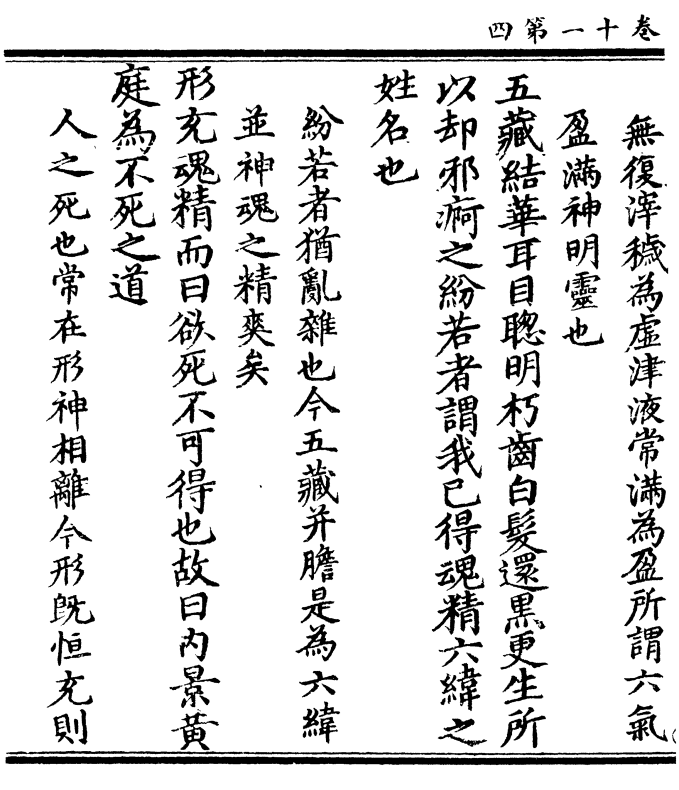 卷十一第四
無復滓穢為虛津液常滿為盈所謂六氣
盈滿神明靈也
五藏結華耳目聦明朽齒白髮還黒更生所
以却邪痾之紛若者謂我已得魂精六緯之
姓名也
紛若者猶亂雜也今五藏并膽是為六緯
並神魂之精爽矣
形充魂精而曰欲死不可得也故曰内景黄
庭為不死之道
人之死也常在形神相離今形既恒充則